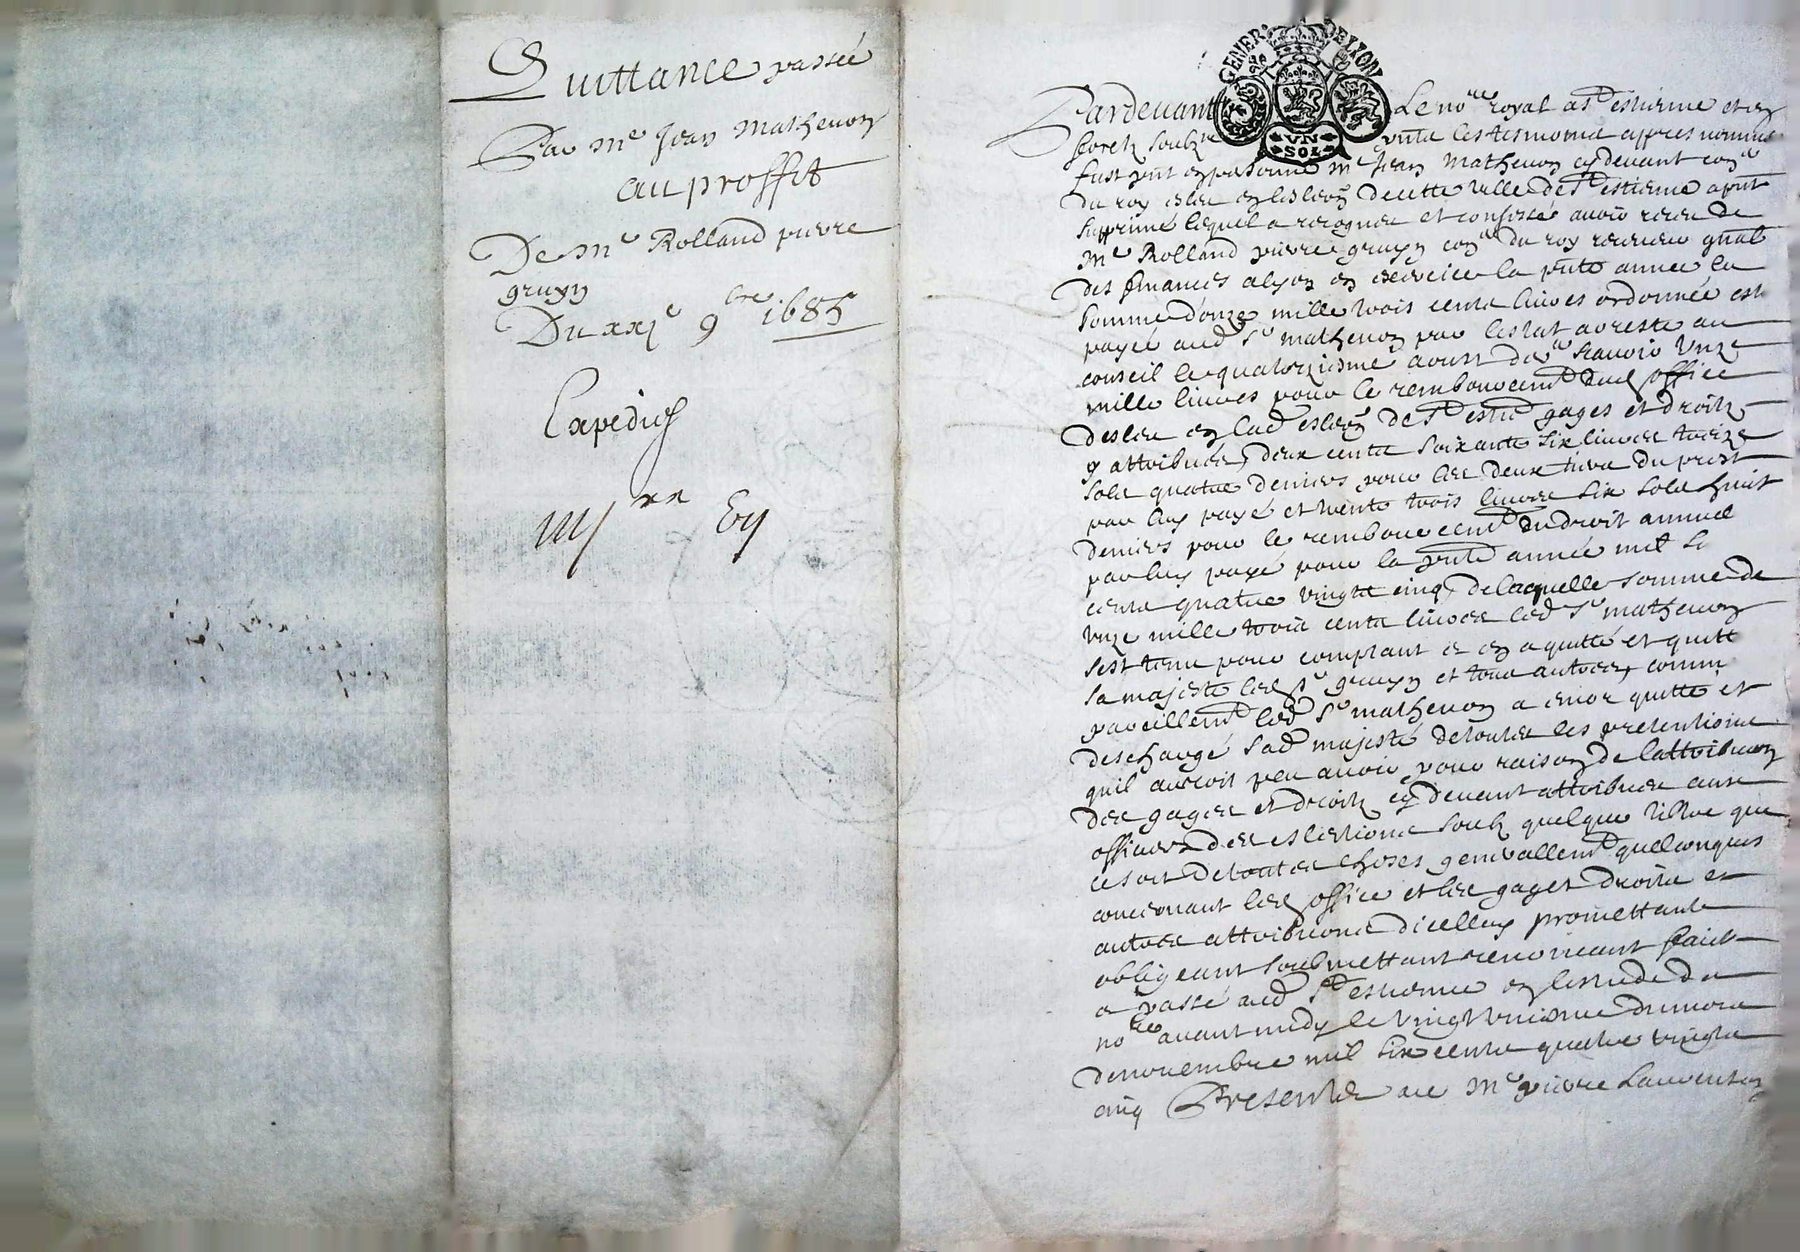 Quittance passée
Par me Jean Mathevon
au proffit
De me Rolland pierre
gruyn
Du xxje 9bre 1685
Expedié
GENER DE LYON
VN
SOL
Pardevant Le nore royal a St estienne et en
foretz soubzne pnts les tesmoins appres nommés
fust pnt en personne me Jean mathevon cy devant coner
du roy esleu en leslecon de cette ville de St estienne apnt
supprimé lequel a recogneu et confessé avoir receu de
me Rolland pierre gruyn coner du roy receveur gnal
des finances alyon en exercice la pnte année la
somme donze mille trois cents livres ordonnée estre
payée aud Sr mathevon par lestat arresté au
conseil le quatorziesme aoust der scavoir unze
mille livres pour le remboursemt dud office
desleu en lad eslecon de St estne gages et droitz
y attribués, deux cents soixante six livres treize
sols quatre deniers pour les deux tiers du prest
par luy payé et trente trois livres six sols huit
deniers pour le remboursemt du droit annuel
par luy payé pour la pnte année mil si
cents quatre vingts cinq, de laquelle somme de
unze mille trois cents livres led Sr mathevon
sest tenu pour comptant et en a quitté et quitte
sa majesté led Sr gruyn et tous autres, comme
pareillemt led Sr mathevon a encor quitté et
deschargé sad majesté de toutes les pretentions
quil auroit peu avoir pour raison de lattribuon
des gages et droitz cy devant attribués aux
officiers des eslections soubz quelque tiltre que
ce soit de toutes choses generallemt quelconques
concernant led office et les gages droits et
autres attribuons dicelluy promettants
obligeant soubmettant renonceant faict
a passé aud St estienne en lestude du
nore avant midy le vingt uniesme du mois
de novembre mil six cents quatre vingts
cinq Presents ace me pierre Lauvenson